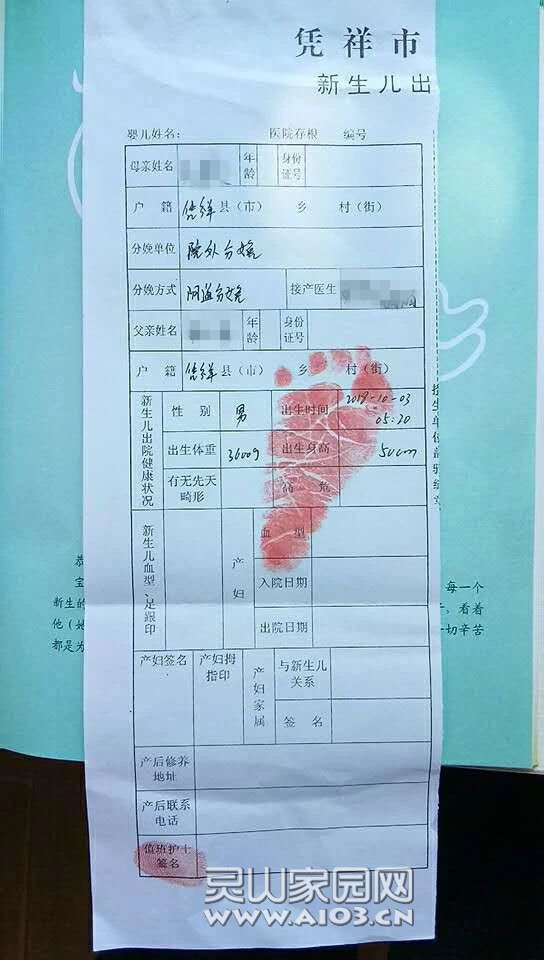 凭祥市
新生儿出
婴儿姓名: 医院存根 编号
母亲姓名 年龄 身份证号
户 籍 凭祥县(市) 乡 村(街)
分娩单位 院外分娩
分娩方式 阴道分娩 接产医生
父亲姓名 年龄 身份证号
户 籍 凭祥县(市) 乡 村(街)
新生儿出院健康状况
性 别 男 出生时间 2018-10-03 05:20
出生体重 3600g 出生身高 50cm
有无先天畸形
新生儿血型、足跟印
产妇
血 型
入院日期
出院日期
产妇签名 产妇拇指印 产妇家属 与新生儿关系
签 名
产后修养地址
产后联系电话
值班护士签名
恭
宝
新生的
他(她
都是为
每一个
看着
一切辛苦
灵山家园网
WWW.AI03.CN